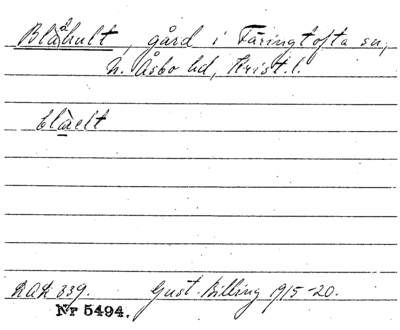 Blåhult, gård i Färingtofta sn,
N. Åsbo hd, Krist. l.
blàelt
DAL 339. Gust. Billing 1915-20.
Nr 5494.